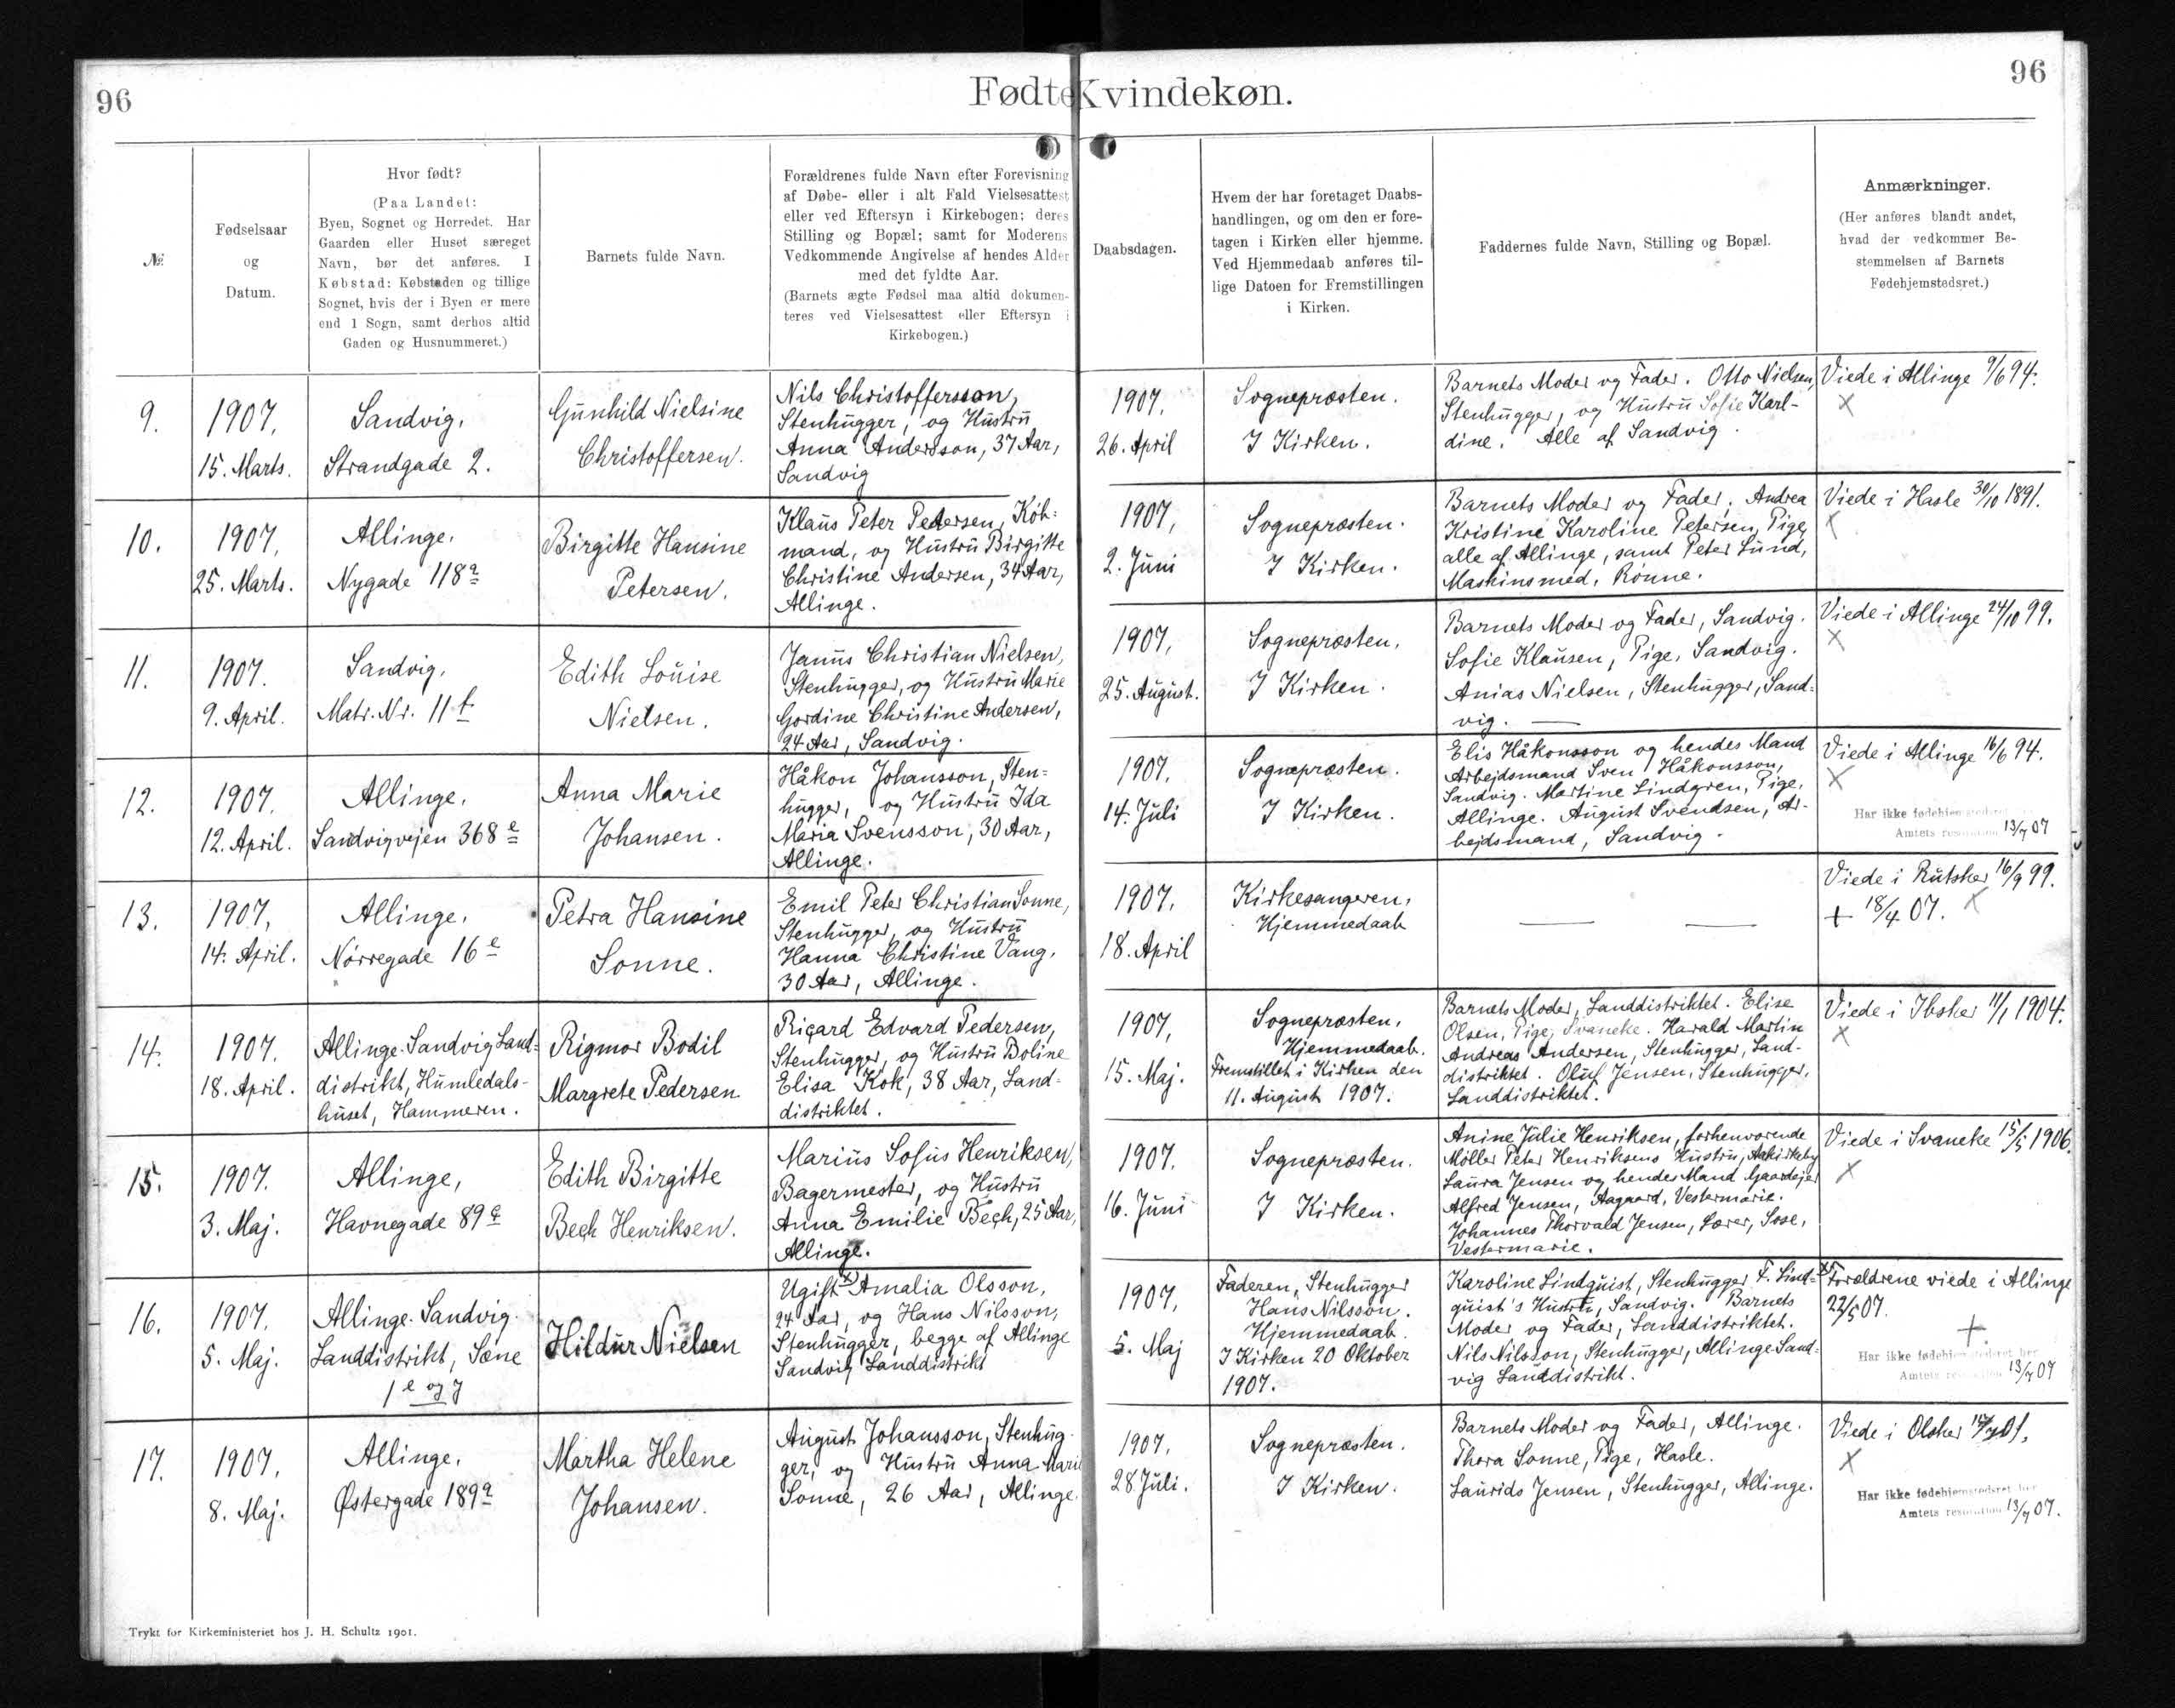 96
Fødte Kvindekøn.
96
№
Fødselsaar
og
Datum.
Hvor født?
(Paa Landet:
Byen, Sognet og Herredet. Har
Gaarden eller Huset særeget
Navn, bør det anføres. I
Købstad: Købstaden og tillige
Sognet, hvis der i Byen er mere
end 1 Sogn, samt derhos altid
Gaden og Husnummeret.)
Barnets fulde Navn.
Forældrenes fulde Navn efter Forevisning
af Døbe- eller i alt Fald Vielsesattest
eller ved Eftersyn i Kirkebogen; deres
Stilling og Bopæl; samt for Moderens
Vedkommende Angivelse af hendes Alder
med det fyldte Aar.
(Barnets ægte Fødsel maa altid dokumen-
teres ved Vielsesattest eller Eftersyn i
Kirkebogen.)
Daabsdagen.
Hvem der har foretaget Daabs-
handlingen, og om den er fore-
tagen i Kirken eller hjemme.
Ved Hjemmedaab anføres til-
lige Datoen for Fremstillingen
i Kirken.
Faddernes fulde Navn, Stilling og Bopæl.
Anmærkninger.
(Her anføres blandt andet,
hvad der vedkommer Be-
stemmelsen af Barnets
Fødehjemstedsret.)
9.
1907.
15. Marts.
Sandvig,
Strandgade 2.
Gunhild Nielsine
Christoffersen.
Nils Christoffersson,
Stenhugger, og Hustru
Anna Andersson, 37 Aar,
Sandvig
1907.
26. April
Sognepræsten.
I Kirken.
Barnets Moder og Fader. Otto Nielsen,
Stenhugger, og Hustru Sofie Karl-
dine. Alle af Sandvig.
Viede i Allinge 9/6 94.
×
10.
1907.
25. Marts.
Allinge.
Nygade 118a
Birgitte Hansine
Petersen.
Klaus Peter Petersen, Køb-
mand, og Hustru Birgitte
Christine Andersen, 34 Aar,
Allinge.
1907,
2. Juni
Sognepræsten.
I Kirken.
Barnets Moder og Fader, Andrea
Kristine Karoline Petersen, Pige,
alle af Allinge, samt Peter Lund,
Maskinsmed, Rønne.
Viede i Hasle 30/10 1891.
×
11.
1907.
9. April.
Sandvig,
Matr. Nr. 11 f
Edith Louise
Nielsen.
Janus Christian Nielsen,
Stenhugger, og Hustru Marie
Gordine Christine Andersen,
24 Aar, Sandvig.
1907,
25. August.
Sognepræsten,
I Kirken.
Barnets Moder og Fader, Sandvig.
Sofie Klausen, Pige, Sandvig.
Anias Nielsen, Stenhugger, Sand-
vig.
Viede i Allinge 24/10 99.
×
12.
1907.
12. April.
Allinge,
Sandvigvejen 368 e
Anna Marie
Johansen.
Håkon Johansson, Sten-
hugger, og Hustru Ida
Maria Svensson, 30 Aar,
Allinge.
1907.
14. Juli
Sognepræsten.
I Kirken.
Elis Håkonsson og hendes Mand
Arbejdsmand Sven Håkonsson,
Sandvig. Martine Lindgren, Pige,
Allinge. August Svendsen, Ar-
bejdsmand, Sandvig.
Viede i Allinge 16/6 94.
×
Har ikke
Amtets 13/7 07
13.
1907,
14. April.
Allinge,
Nørregade 16 e
Petra Hansine
Sonne.
Emil Peter Christian Sonne,
Stenhugger, og Hustru
Hanna Christine Vang,
30 Aar, Allinge.
1907.
18. April
Kirkesangeren,
Hjemmedaab
Viede i Rutsker 16/9 99.
+ 18/4 07. ×
14.
1907.
18. April.
Allinge-Sandvig Land-
distrikt, Humledals-
huset, Hammeren.
Rigmor Bodil
Margrete Pedersen
Riçard Edvard Pedersen,
Stenhugger, og Hustru Boline
Elisa Kok, 38 Aar, Land-
distriktet.
1907,
15. Maj.
Sognepræsten,
Hjemmedaab.
Fremstillet i Kirken den
11. August 1907.
Barnets Moder, Landdistriktet. Elise
Olsen, Pige, Svaneke. Harald Martin
Andreas Andersen, Stenhugger, Land-
distriktet. Oluf Jensen, Stenhugger,
Landdistriktet.
Viede i Ibsker 11/1 1904.
×
15.
1907.
3. Maj.
Allinge,
Havnegade 89
Edith Birgitte
Bech Henriksen.
Marius Sofus Henriksen,
Bagermester, og Hustru
Anna Emilie Bech, 25 Aar,
Allinge.
1907.
16. Juni
Sognepræsten.
I Kirken.
Anine Julie Henriksen, forhenværende
Møller Peter Henriksens Hustru, Aakirkeby
Laura Jensen og hendes Mand Gaardejer
Alfred Jensen, Aagaard, Vestermarie.
Johannes Thorvald Jensen, Lærer, Sose,
Vestermarie.
Viede i Svaneke 15/5 1906.
×
16.
1907.
5. Maj.
Allinge-Sandvig
Landdistrikt, Sæne
1 e og 7
Hildur Nielsen
Ugift ×) Amalia Olsson,
24 Aar, og Hans Nilsson,
Stenhugger, begge af Allinge
Sandvig Landdistrikt
1907,
5. Maj
Faderen, Stenhugger
Hans Nilsson.
Hjemmedaab.
I Kirken 20 Oktober
1907.
Karoline Lindquist, Stenhugger F. Lind-
quist's Hustru, Sandvig. Barnets
Moder og Fader, Landdistriktet.
Nils Nilsson, Stenhugger, Allinge Sand-
vig Landdistrikt.
×) Forældrene viede i Allinge
22/5 07.
+
Har ikke
Amtets 13/7 07
17.
1907.
8. Maj.
Allinge,
Østergade 189a
Martha Helene
Johansen.
August Johansson, Stenhug-
ger, og Hustru Anna Marie
Sonne, 26 Aar, Allinge.
1907.
28. Juli.
Sognepræsten.
I Kirken.
Barnets Moder og Fader, Allinge.
Thora Sonne, Pige, Hasle.
Laurids Jensen, Stenhugger, Allinge.
Viede i Olsker
×
Har ikke
Amtets 13/7 07.
Trykt for Kirkeministeriet hos J. H. Schultz 1901.